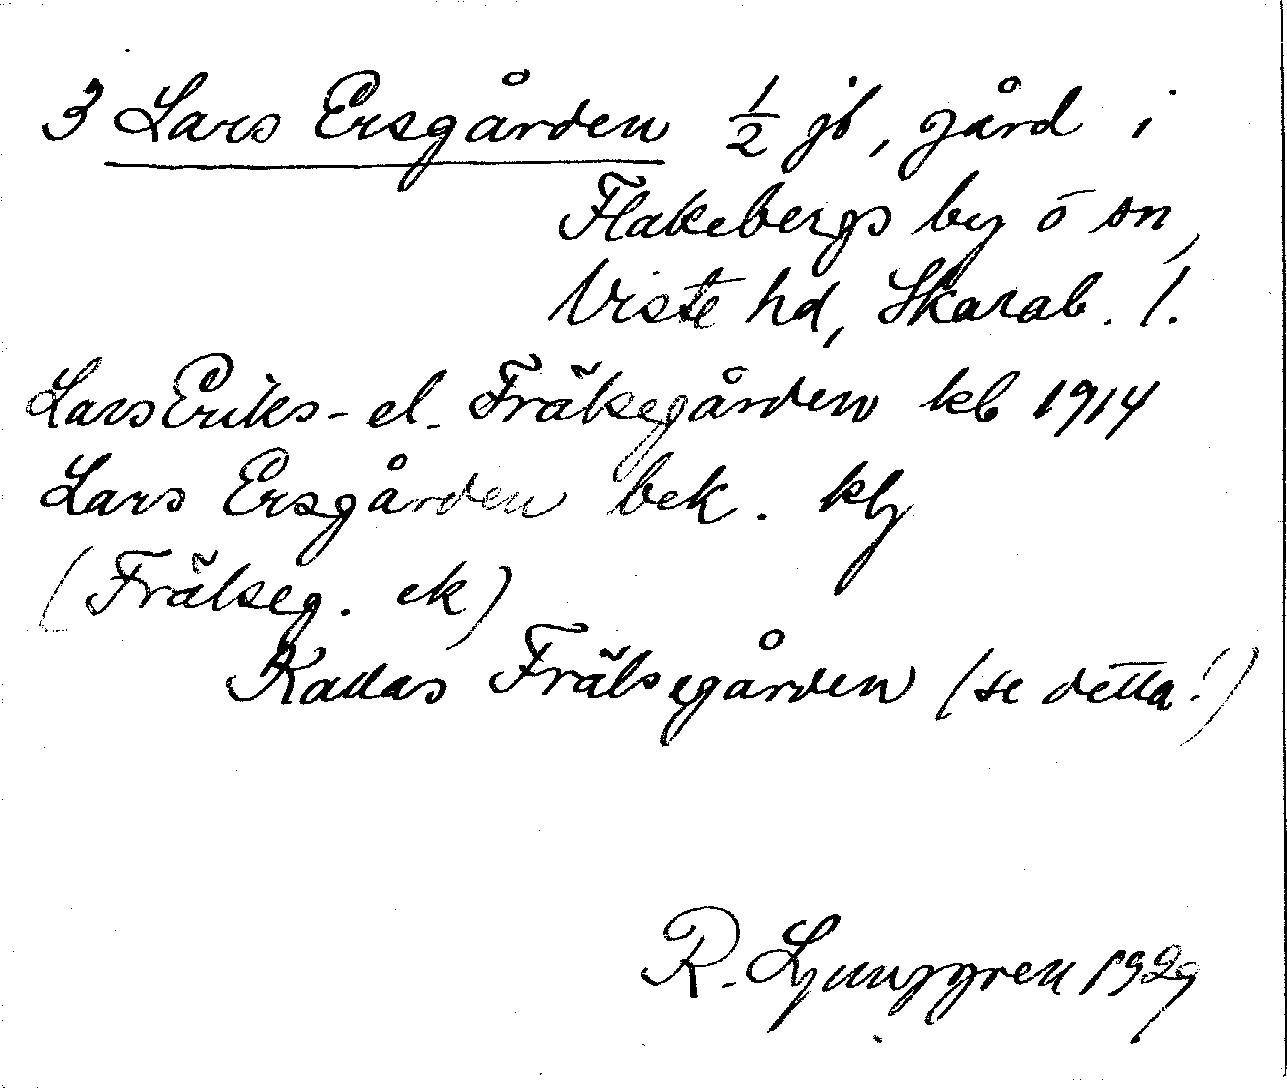 3 Lars Ersgården 1/2 jb, gård i
Flakebergs by o sn,
Viste hd, Skarab. l.
Lars Eriks- el. Frälsegården kb 1914
Lars Ersgården bek. klj
(Frälseg. ek)
Kallas Frälsegården (se detta!)
R. Ljunggren 1929